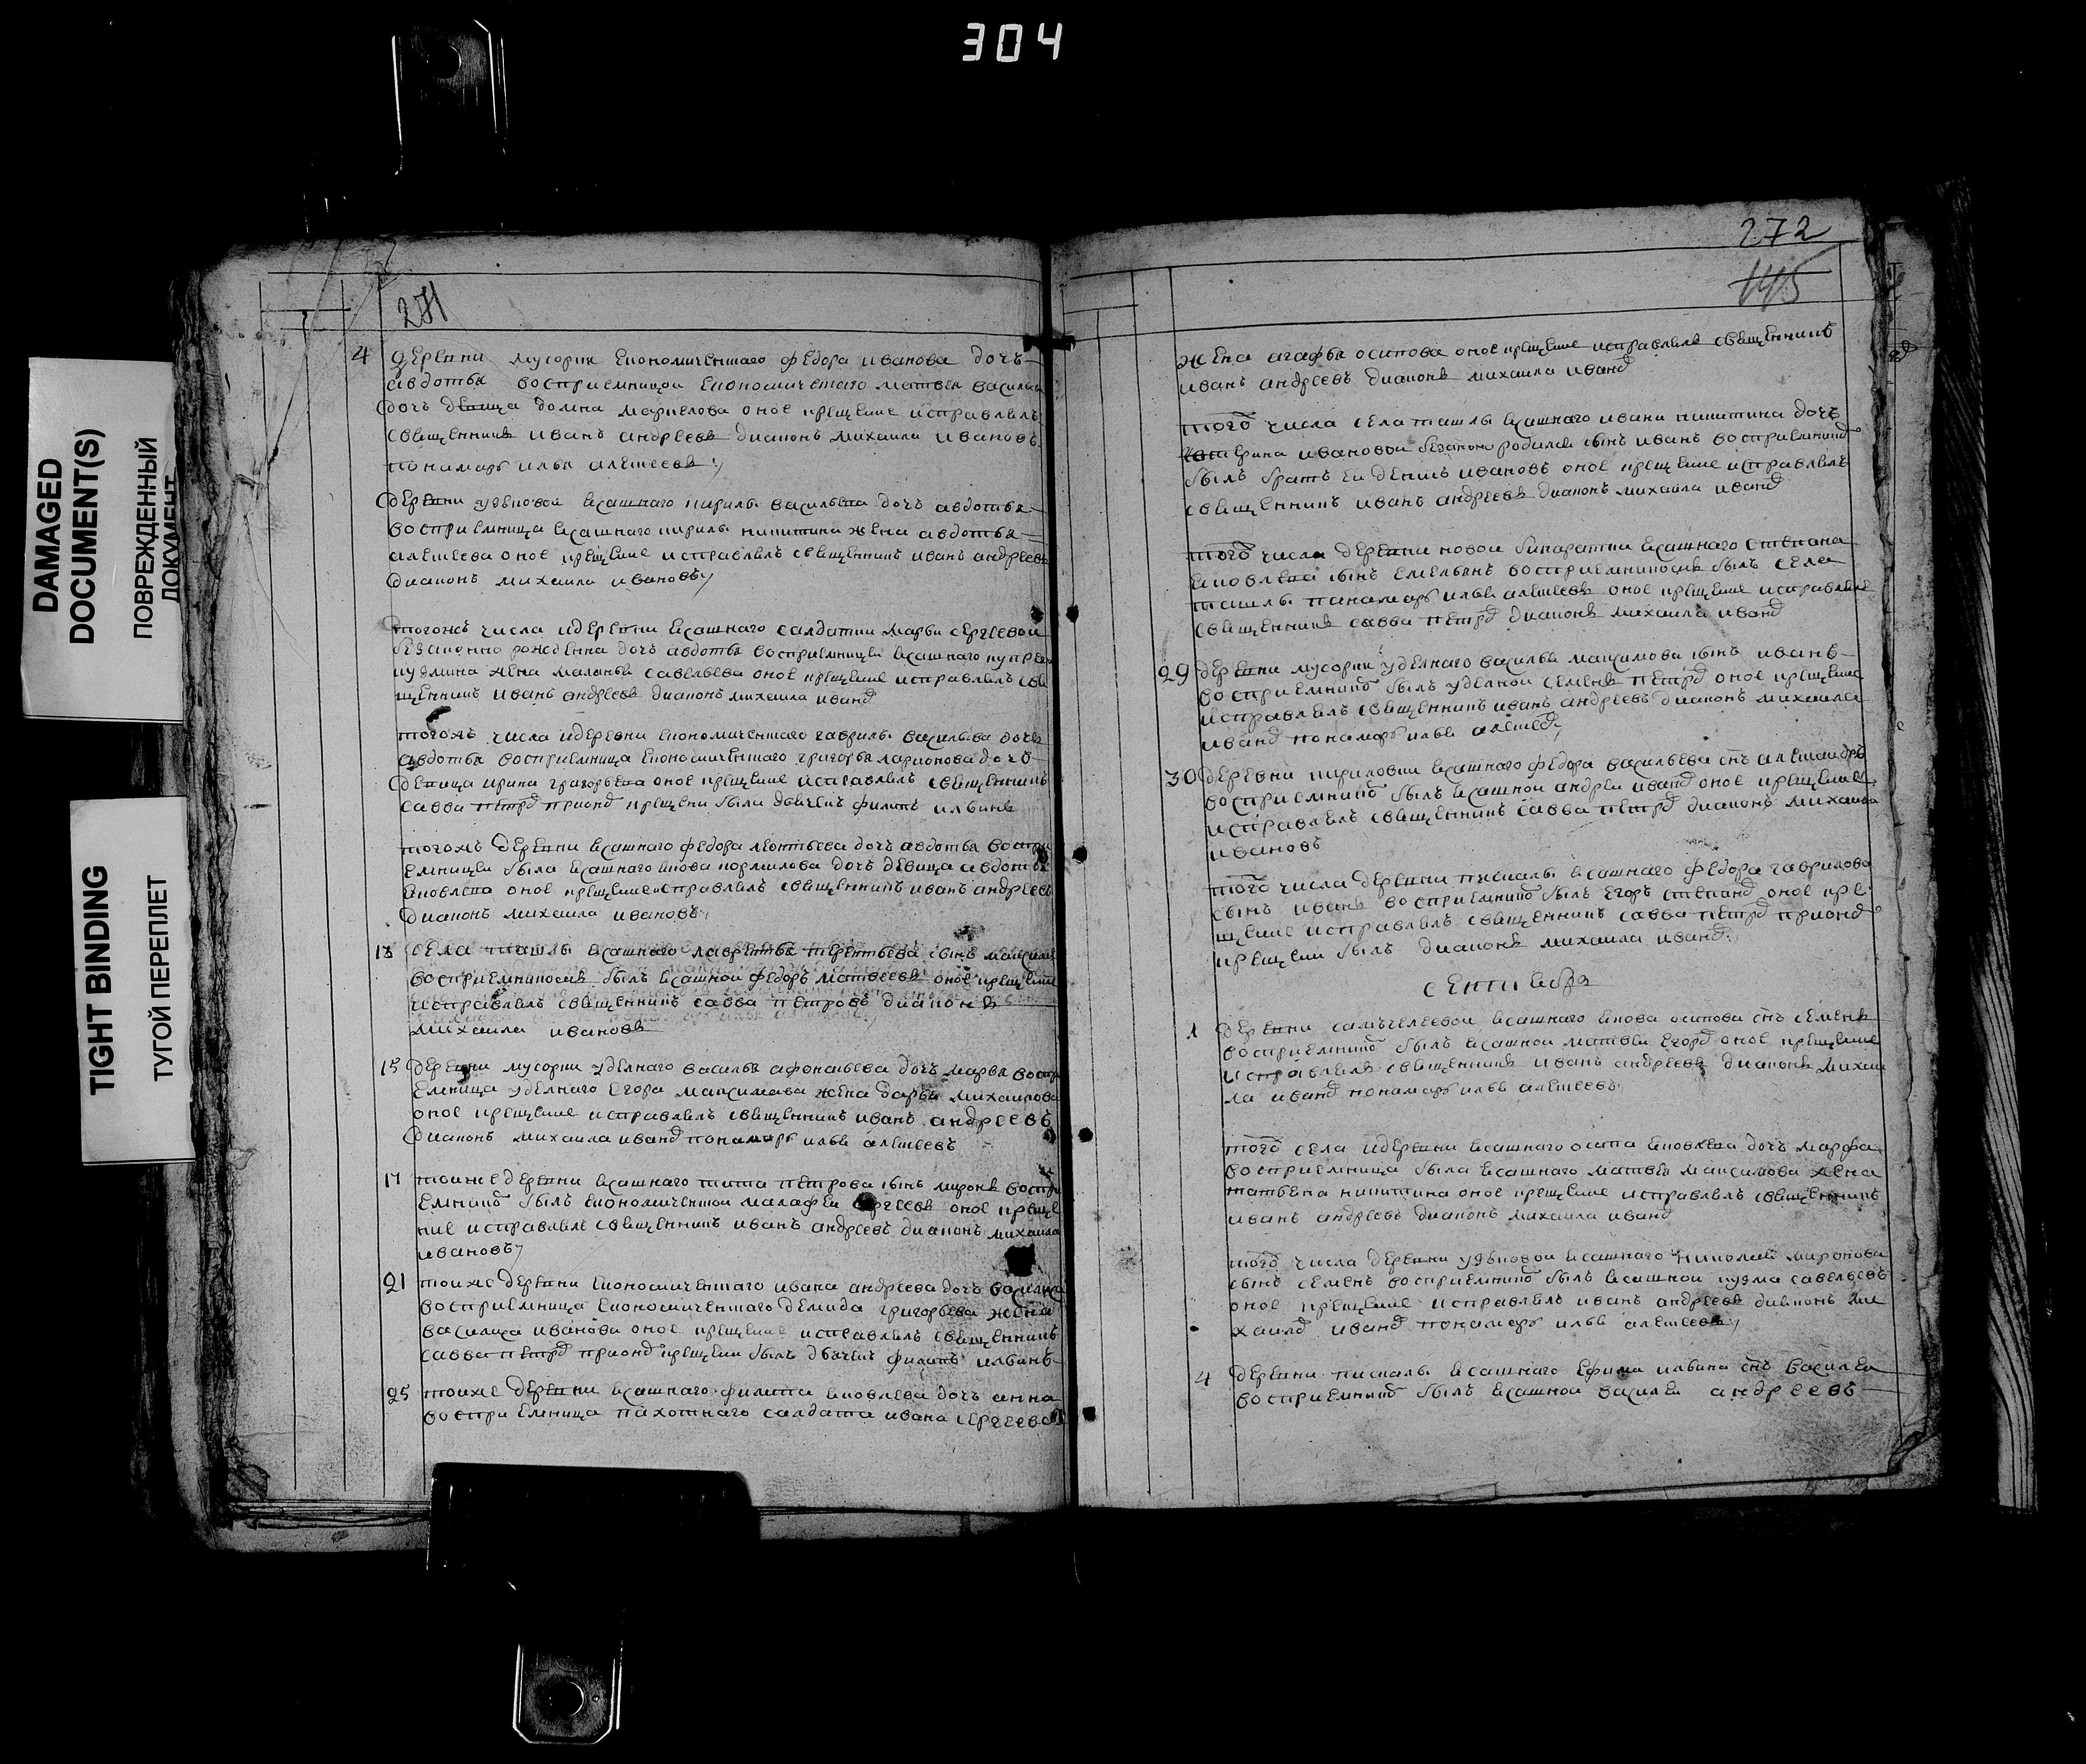 304
DAMAGED
DOCUMENT(S)
ПОВРЕЖДЕННЫЙ
ДОКУМЕНТ
TIGHT BINDING
ТУГОЙ ПЕРЕПЛЕТ
271
4 деревни мусорки економического федора иванова дочь
авдотья восприемницои економического матвея
дочь девица домна маркелова оное крещение исправлялъ
священникъ иванъ андреевъ дияконъ михаила ивановъ
понамарь илья алексеевъ
деревни ясашнаго кирилы васильева дочь авдотья
восприемница ясашнаго кирилы никитина жена авдотья
алексеева оное крещение исправлялъ священникъ иванъ андреевъ
дияконъ михаила ивановъ
тогожъ числа идеревни ясашнаго салдатки марьи сергеевои
безаконно рожденна дочь авдотья восприемницеи ясашнаго
кузмина жена маланья савельева оное крещение исправлялъ свя
щенникъ иванъ андреевъ дияконъ михаила иванов
тогожъ числа идеревни економического гаврилы васильева дочь
авдотья восприемница економического григорья ларионова дочь
девица ирина григорьева оное крещение исправлялъ священникъ
савва петров при оном крещени были дьячекъ филипъ ильинъ
тогожъ деревни ясашнаго федора леонтьева дочь авдотья воспри
емницеи была ясашнаго якова кормилова дочь девица авдотья
яковлева оное крещение исправлялъ священникъ иванъ андреевъ
дияконъ михаила ивановъ
13 села ташлы ясашнаго лаврентья терентьева сынъ
восприемникомъ былъ ясашнои федоръ матвеевъ оное крещение
исправлялъ священникъ савва петровъ дияконъ
михаила ивановъ
15 деревни мусорки уделнаго василья афонасьева дочь марья воспри
емница уделнаго егора максимава жена дарья михаилова
оное крещение исправлялъ священникъ иванъ андреевъ
дияконъ михаила иванов понамарь илья алексеевъ
17 тоижедеревни ясашнаго тита петрова сынъ миронъ воспри
емником былъ економическои малафеи сергеевъ оное креще
ние исправлялъ священникъ иванъ андреевъ дияконъ михаила
ивановъ
21 тоиже деревни економического ивана андреева дочь
восприемница економического демида григорьева жена
василиса иванова оное крещение исправлялъ священникъ
савва петров при оном крещени былъ дьячекъ филипъ ильинъ
25 тоиже деревни ясашнаго филипа яковлева дочь анна
восприемница пахотнаго салдата ивана сергеева
272
145
жена агафья осипова оное крещение исправлялъ священникъ
иванъ андреевъ дияконъ михаила иванов
того числа села ташлы ясашнаго ивана никитина дочь
ивановои безаконо родился сынъ иванъ восприемником
былъ братъ еи денисъ ивановъ оное крещение исправлялъ
священникъ иванъ андреевъ дияконъ михаила иванов
того числа деревни новои ясашнаго степана
яковлева сынъ емельянъ восприемникомъ былъ села
ташлы панамарь илья алексеевъ оное крещение исправлялъ
священникъ савва петров дияконъ михаила иванов
29 деревни мусорки уделнаго василья максимова сынъ иванъ
восприемником былъ уделнои семенъ петров оное крещение
исправлялъ священникъ иванъ андреевъ дияконъ михаила
иванов понамарь илья алексеев
30 деревни кириловки ясашнаго федора васильева снъ александръ
восприемником былъ ясашнои андреи иванов оное крещение
исправлялъ священникъ савва петров дияконъ михаила
ивановъ
того числа деревни пискалы ясашнаго федора гаврилова
сынъ иванъ восприемником былъ егоръ степанов оное кре
щение исправлялъ священникъ савва петров при оном
крещени былъ дияконъ михаила иванов
сентиабря
1 деревни ясашнаго якова осипова снъ семенъ
восприемником былъ ясашнои матвеи егоров оное крещение
исправлялъ священникъ иванъ андреевъ дияконъ михаи
ла иванов понамарь илья алексеевъ
того села идеревни ясашнаго осипа яковлева дочь марфа
восприемница была ясашнаго матвея максимова жена
татьяна никитина оное крещение исправлялъ священникъ
иванъ андреевъ дияконъ михаила иванов
того числа деревни ясашнаго николая миронова
сынъ семенъ восприемником былъ ясашнои кузма савельевъ
оное крещение исправлялъ иванъ андреевъ дияконъ ми
хаила иванов понамарь илья алексеевъ
4 деревни пискалы ясашнаго ефима ильина снъ василеи
восприемником былъ ясашнои василеи андреевъ